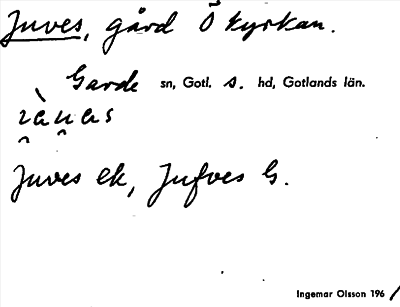 Juves, gård Ö kyrkan.
Garde sn, Gotl. s. hd, Gotlands län.
Juves ek, Jufves G.
Ingemar Olsson 196